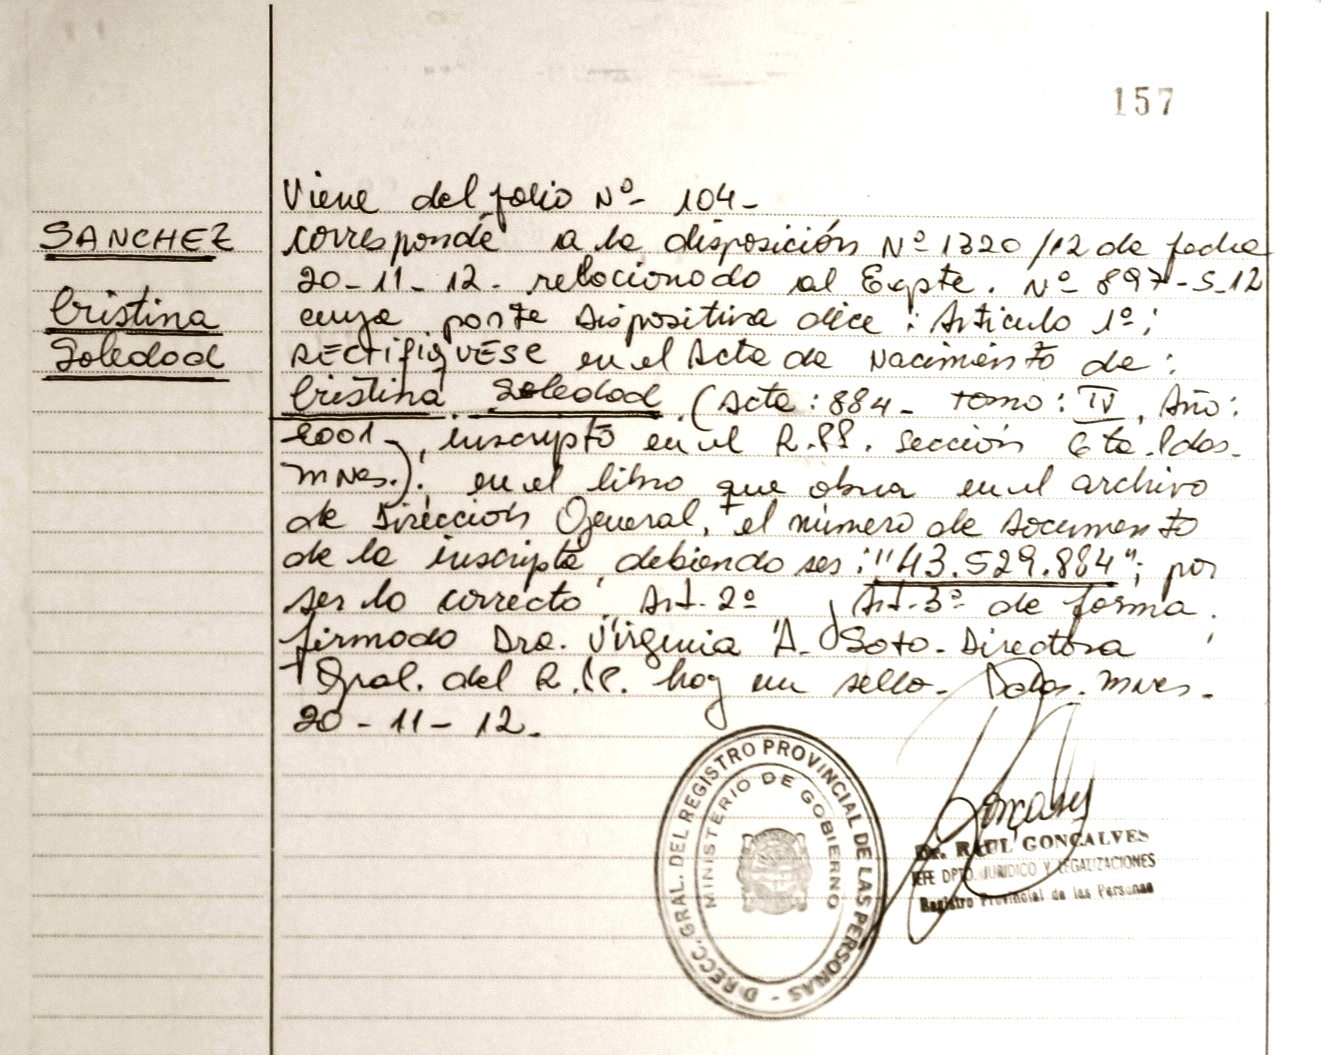 157
Viene del folio Nº- 104-
SANCHEZ
Cristina
Soledad
corresponde a la disposición Nº 1320/12 de fecha
20-11-12. relacionado al Expte. Nº 897-S-12
cuya parte Dispositiva dice: Articulo 1º;
RECTIFIQUESE en el Acta de Nacimiento de:
Cristina Soledad (Acta: 884- tomo: IV, Año:
2001-, inscripta en el R.PP. sección 6ta. Pdas.
Mnes.); en el libro que obra en el archivo
de Dirección General, el número de Documento
de la inscripta, debiendo ser: "43.529.884"; por
ser lo correcto. Art. 2º Art. 3º de forma.
firmado Dra. Virginia A. Soto. Directora
Gral. del R.P.P. hay un sello- Pdas. Mnes.
20-11-12.
DIRECC. GRAL. DEL REGISTRO PROVINCIAL DE LAS PERSONAS -
MINISTERIO DE GOBIERNO
Dr. RAUL GONÇALVES
JEFE DPTO. JURIDICO Y LEGALIZACIONES
Registro Provincial de las Personas